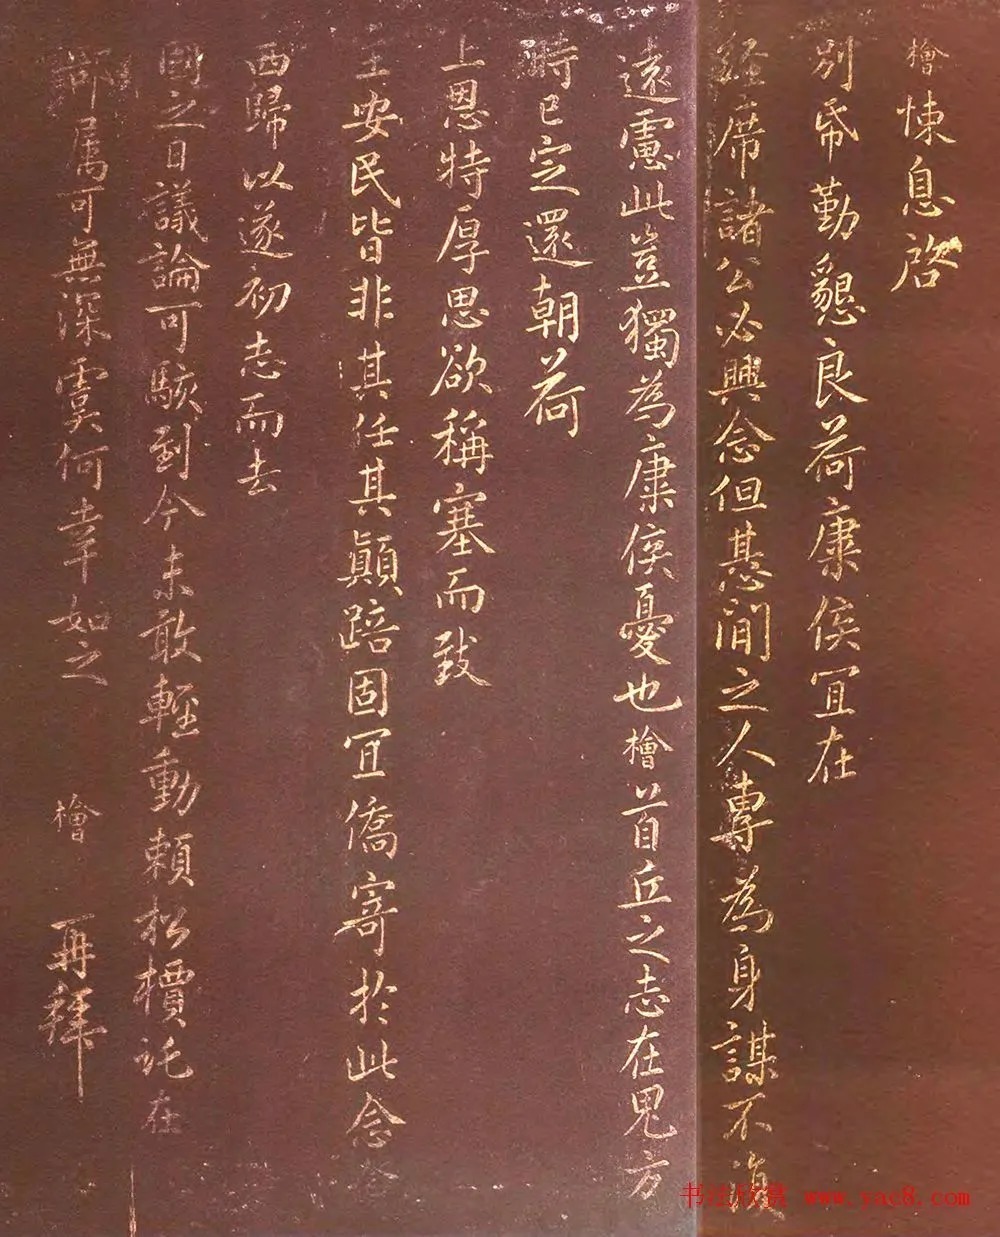 檜悚息啓
別帋勤懇良荷康侯宜在
經席諸公必興念但甚閒之人專為身謀不
遠慮此豈獨為康侯憂也檜首丘之志在
時已定還朝荷
上恩特厚思欲稱塞而致
主安民皆非其任其顛踣固宜僑寄於此念
西歸以遂初志而去
國之日議論可駭到今未敢輕動賴松檟託在
鄰属可無深虞何幸如之 檜 再拜
书法欣赏 www.yac8.com